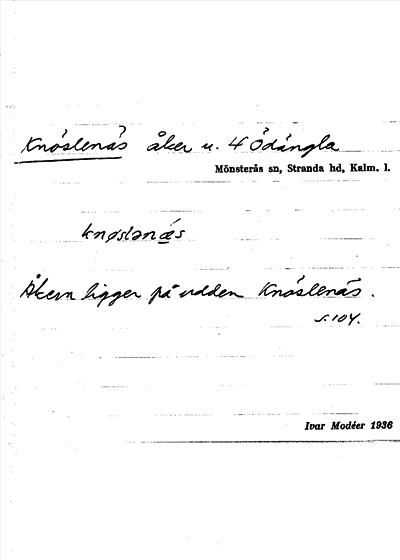 Knöslenäs åker u. 4 Ödängla
Mönsterås sn, Stranda hd, Kalm. l.
knøslənæ̀s
Åkern ligger på udden Knöslenäs.
s. 104.
Ivar Modéer 1936